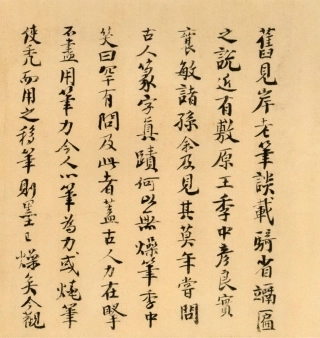 舊見岸老筆談載騎省匾
之說近有敷原王季中彥良實
襄敏諸孫余及見其莫年嘗問
古人篆字真蹟何以無燥筆季中
笑曰罕有問及此者蓋古人力在掔
不盡用筆力今人以筆為力或燒筆
使禿而用之移筆則墨已燥矣今觀